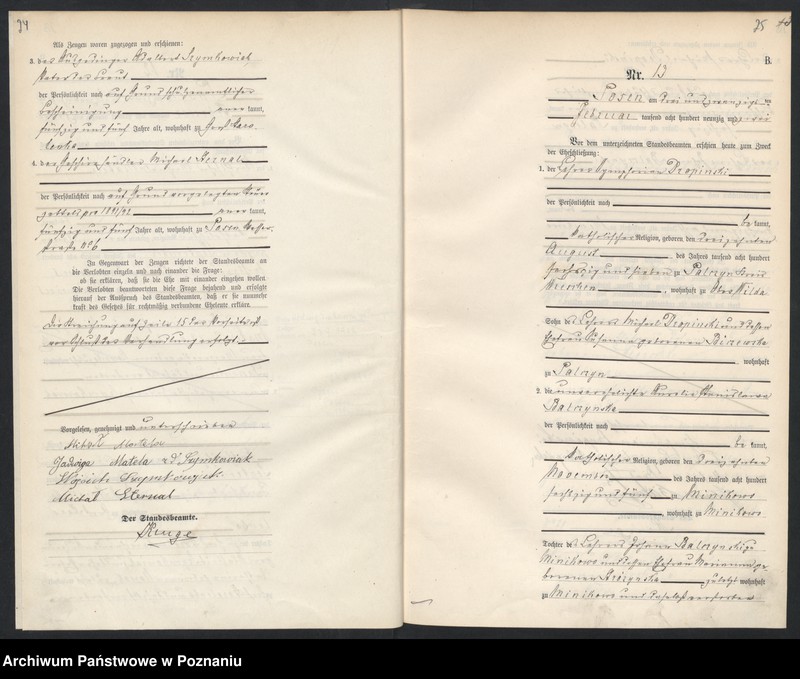 24
Als Zeugen waren zugezogen und erschienen:
3. der Adalbert Szymkowiak
Vater der Braut
der Persönlichkeit nach auf Grund schulzenamtlicher
Bescheinigung kannt,
fünfzig und fünf Jahre alt, wohnhaft zu Groß
4. der Michael Hernal
der Persönlichkeit nach auf Grund vorgelegten Steuer
zettels pro 1891/92 kannt,
fünfzig und fünf Jahre alt, wohnhaft zu Posen
straße No 6
In Gegenwart der Zeugen richtete der Standesbeamte an
die Verlobten einzeln und nach einander die Frage:
ob sie erklären, daß sie die Ehe mit einander eingehen wollen.
Die Verlobten beantworteten diese Frage bejahend und erfolgte
hierauf der Ausspruch des Standesbeamten, daß er sie nunmehr
kraft des Gesetzes für rechtmäßig verbundene Eheleute erkläre.
Die Streichung auf Zeile 15 der Vorseite ist
vor Schluß der Verhandlung erfolgt.
Vorgelesen, genehmigt und unterschrieben
Matela
Jadwiga Matela z d Szymkowiak
Michał
Der Standesbeamte.
Kruge
25
B.
Nr. 13
Posen am drei und zwanzigsten
Februar tausend acht hundert neunzig und zwei
Vor dem unterzeichneten Standesbeamten erschien heute zum Zweck
der Eheschließung:
1. der Lehrer Symphorian Dropinski
der Persönlichkeit nach
be kannt,
katholischer Religion, geboren den dreizehnten
August des Jahres tausend acht hundert
sechszig und sieben zu Palczyn Kreis
Wreschen, wohnhaft zu Ober Wilda
Sohn des Lehrers Michael Dropinski und dessen
Ehefrau Susanna geborenen
wohnhaft
zu Palczyn
2. die unverehelichte Aurelia Stanislawa
Balczynska
der Persönlichkeit nach
be kannt,
katholischer Religion, geboren den dreizehnten
November des Jahres tausend acht hundert
sechszig und fünf zu Minikowo
, wohnhaft zu Minikowo
Tochter des Lehrers Johann Balczynski zu
Minikowo und dessen Ehefrau Marianna ge
borenen zuletzt wohnhaft
zu Minikowo und daselbst verstorben
Archiwum Państwowe w Poznaniu